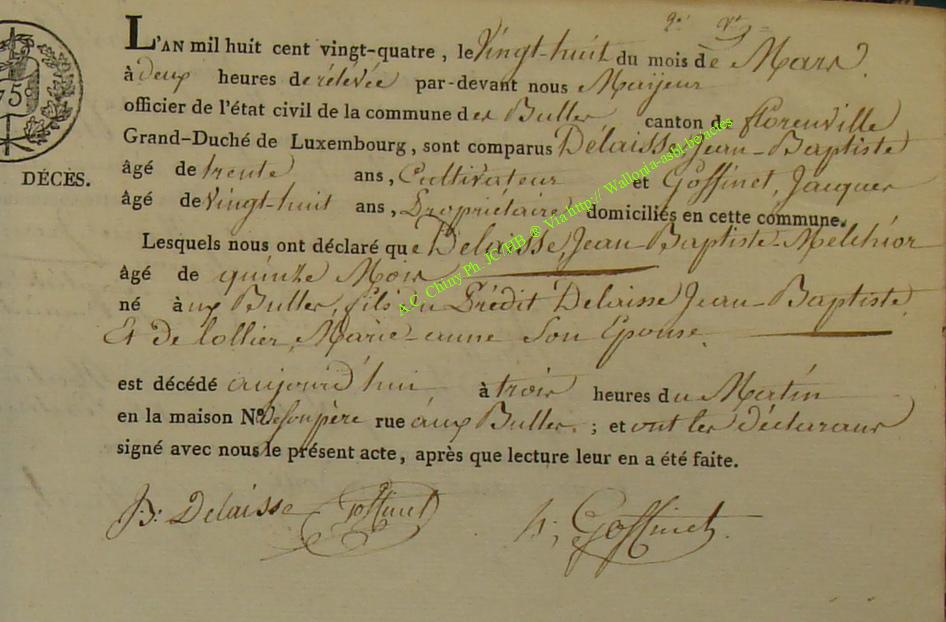 L'AN mil huit cent vingt-quatre, le Vingt-huit du mois de Mars
à deux heures de rélevée par-devant nous Mayeur
officier de l'état civil de la commune des Bulles canton de florenville
Grand-Duché de Luxembourg, sont comparus Délaisse, Jean-Baptiste
75
DÉCÈS.
âgé de trente ans, Cultivateur et Goffinet, Jacques
âgé de Vingt-huit ans, Propriétaire domiciliés en cette commune.
Lesquels nous ont déclaré que Delaisse, Jean Baptiste-Melchior
âgé de quinze Mois
né à ux Bulles, fils du Prédit Delaisse Jean-Baptiste
Et de lollier, Marie-anne Son Epouse.
est décédé aujourd'hui à trois heures du Matin
en la maison No. de Son père rue áux Bulles. ; et ont les déclarans
signé avec nous le présent acte, après que lecture leur en a été faite.
JB: Delaisse Goffinet Goffinet.
A.C. Chiny Ph - JC/HB ® Via http://Wallonia-asbl.be/actes